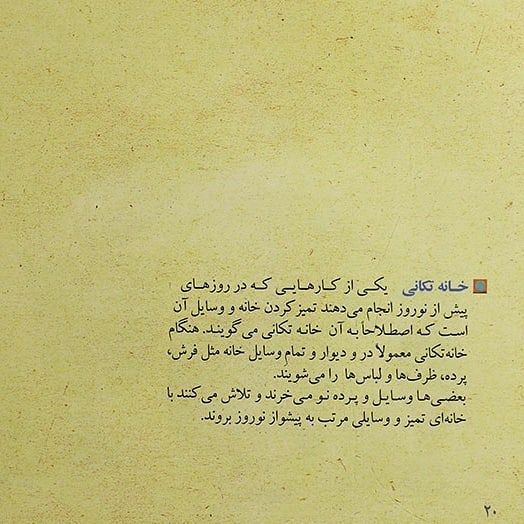 خانه تکانی یکی از کارهایی که در روزهای
پیش از نوروز انجام می‌دهند تمیز کردن خانه و وسایل آن
است که اصطلاحاً به آن خانه تکانی می‌گویند. هنگام
خانه‌تکانی معمولاً در و دیوار و تمام وسایل خانه مثل فرش،
پرده، ظرف‌ها و لباس‌ها را می‌شویند.
بعضی‌ها وسایل و پرده نو می‌خرند و تلاش می‌کنند با
خانه‌ای تمیز و وسایلی مرتب به پیشواز نوروز بروند.
۲۰